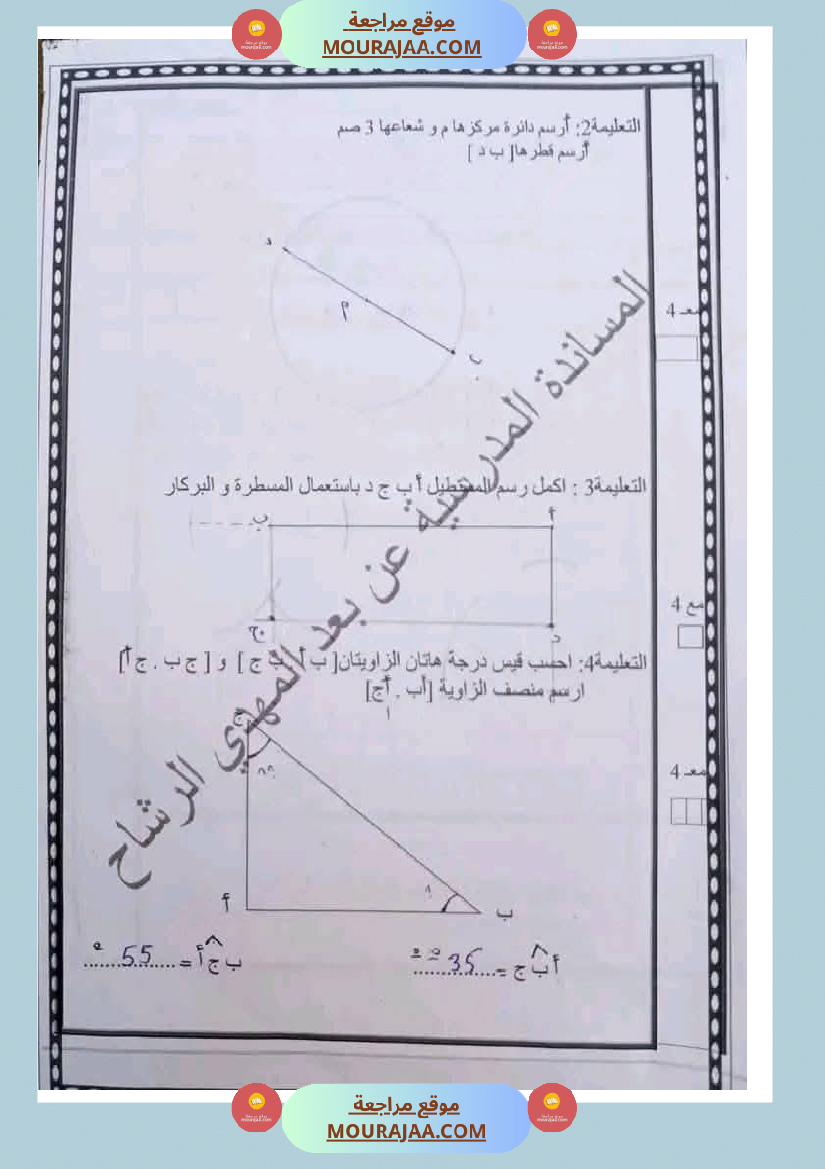 موقع مراجعة
MOURAJAA.COM
التعليمة2: أرسم دائرة مركزها م و شعاعها 3 صم
أرسم قطرها[ ب د ]
د
م
ب
معـ 4
التعليمة3 : اكمل رسم المستطيل أ ب ج د باستعمال المسطرة و البركار
ب
أ
ج
د
مع 4
التعليمة4: احسب قيس درجة هاتان الزاويتان[ ب أ . ب ج ] و [ ج ب . ج أ]
ارسم منصف الزاوية [أب . أج]
ج
معـ 4
أ
ب
أ ب ج = 35
ب ج أ = 55
المساندة المدرسية عن بعد المهدي الرشاح
موقع مراجعة
MOURAJAA.COM